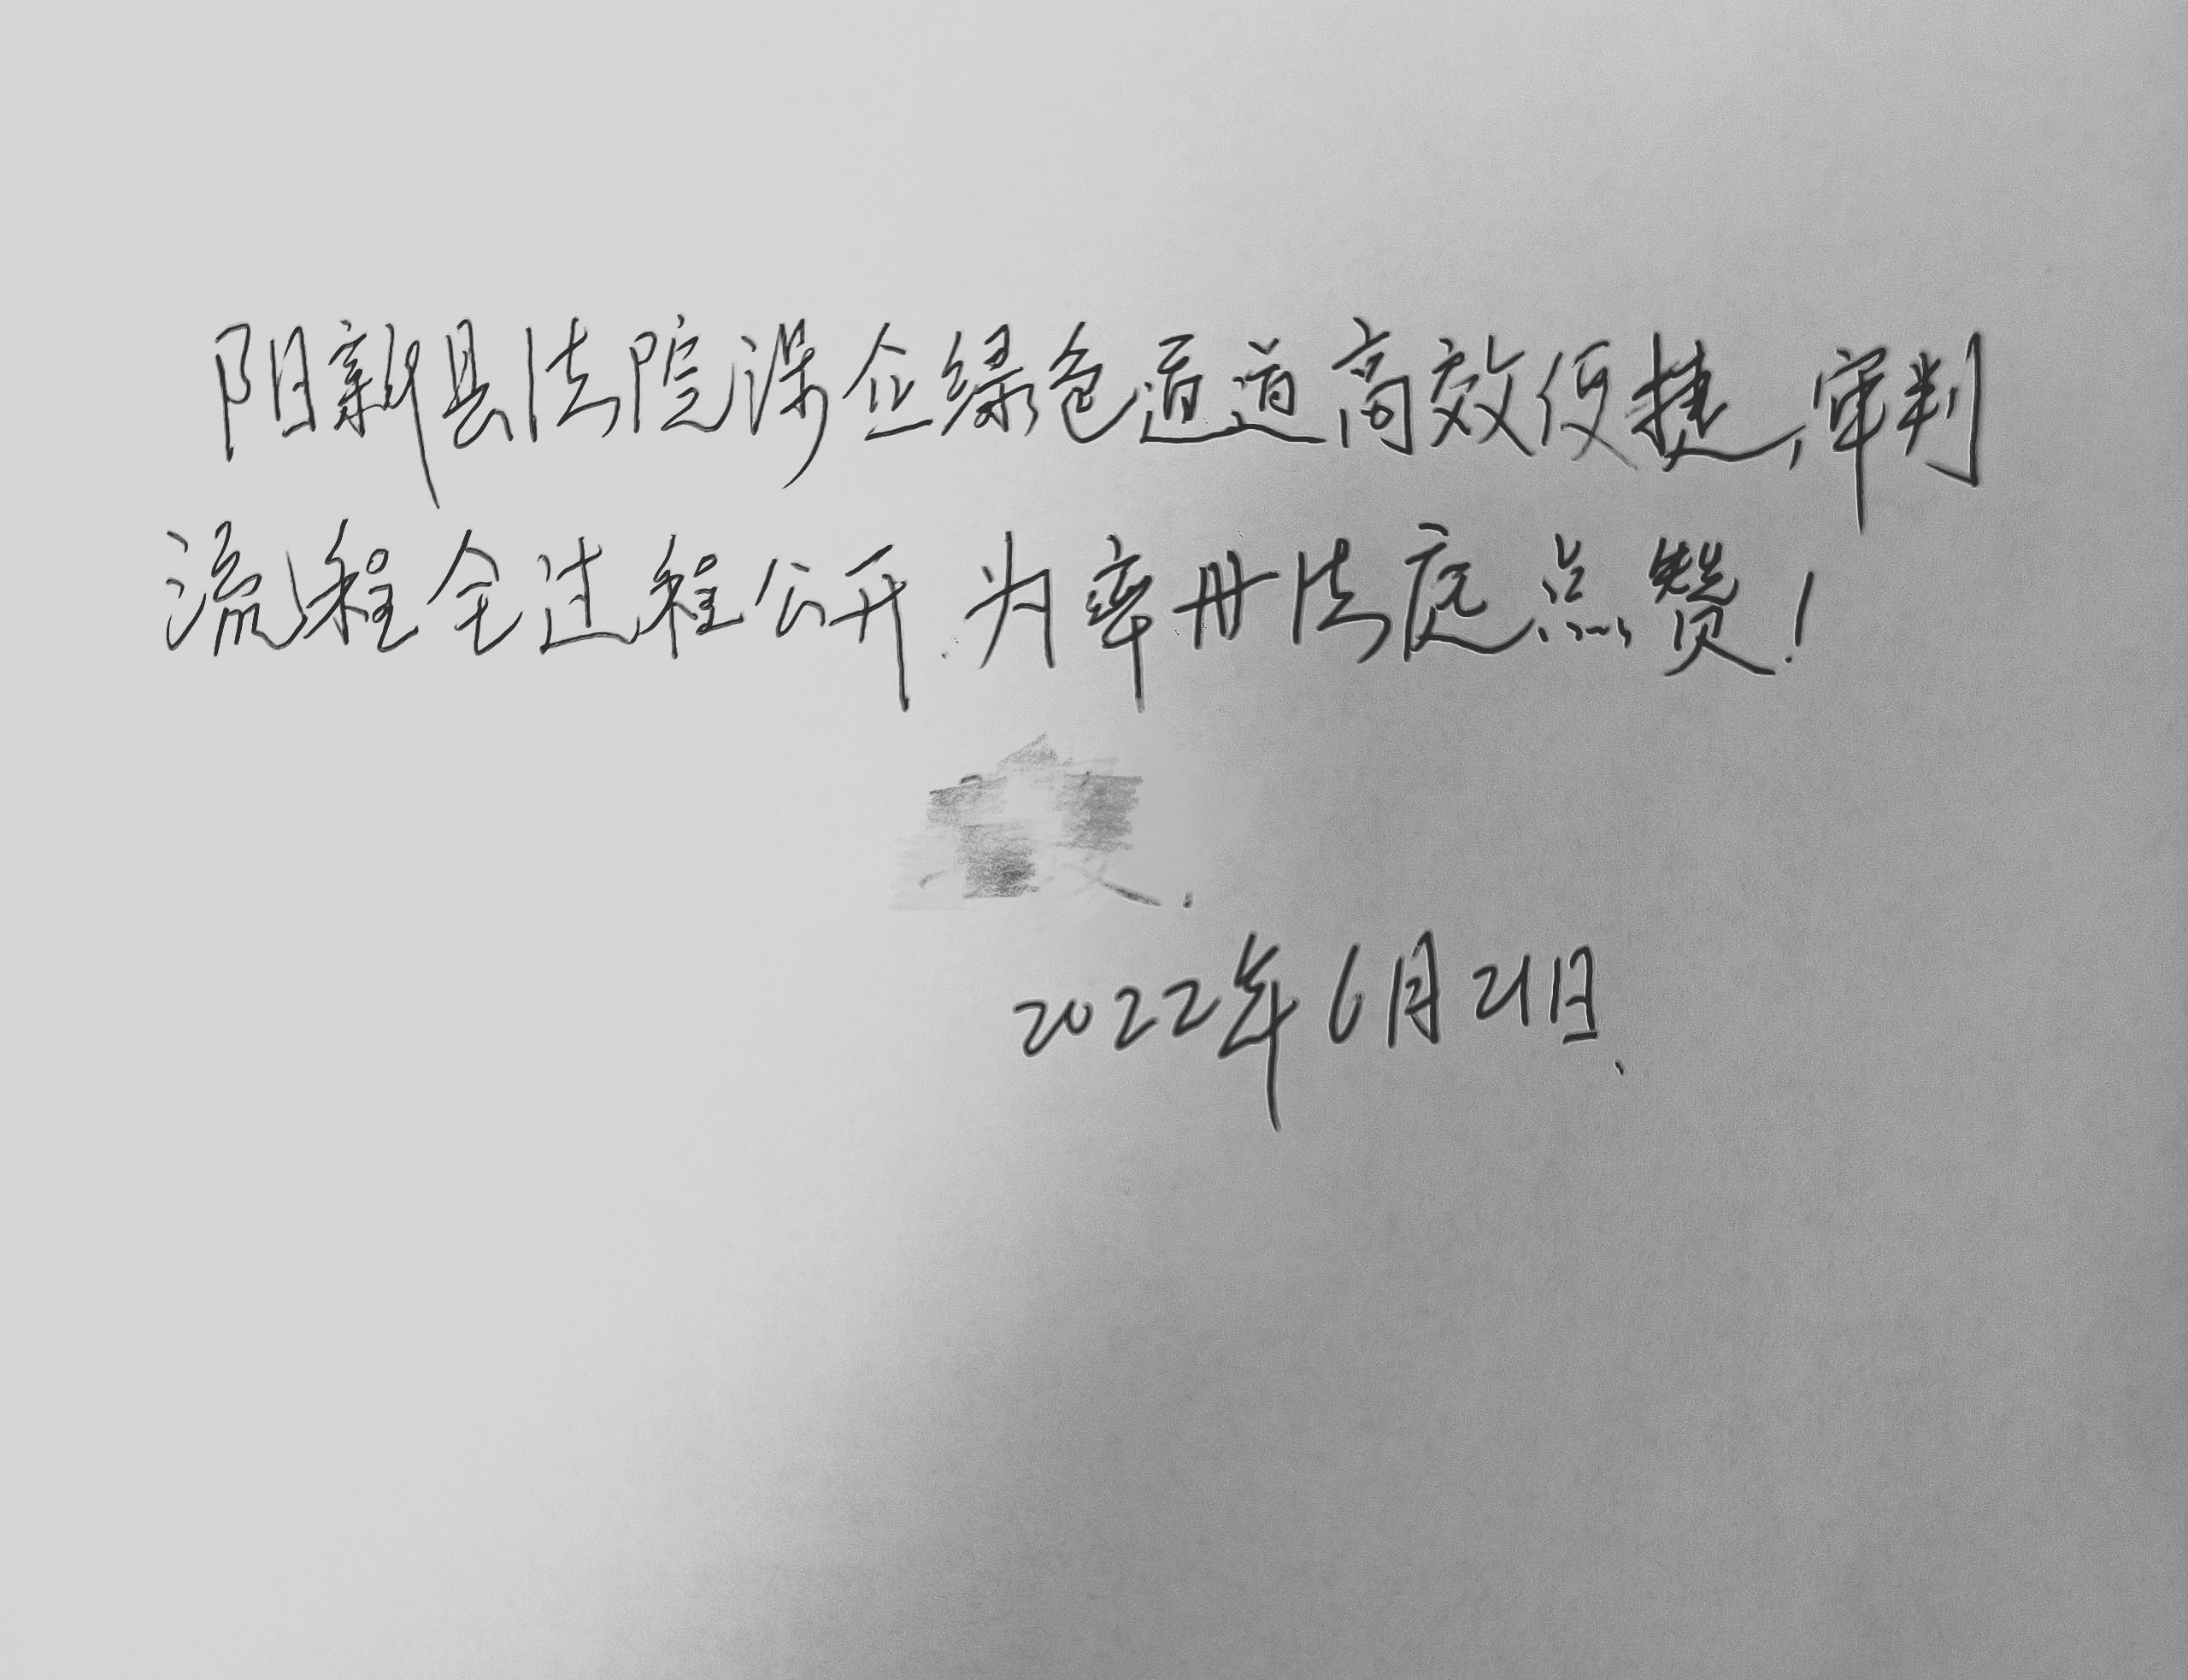 阳新县法院涉企绿色通道高效便捷,审判
流程全过程公开.为率丹法庭点赞!
2022年6月21日、